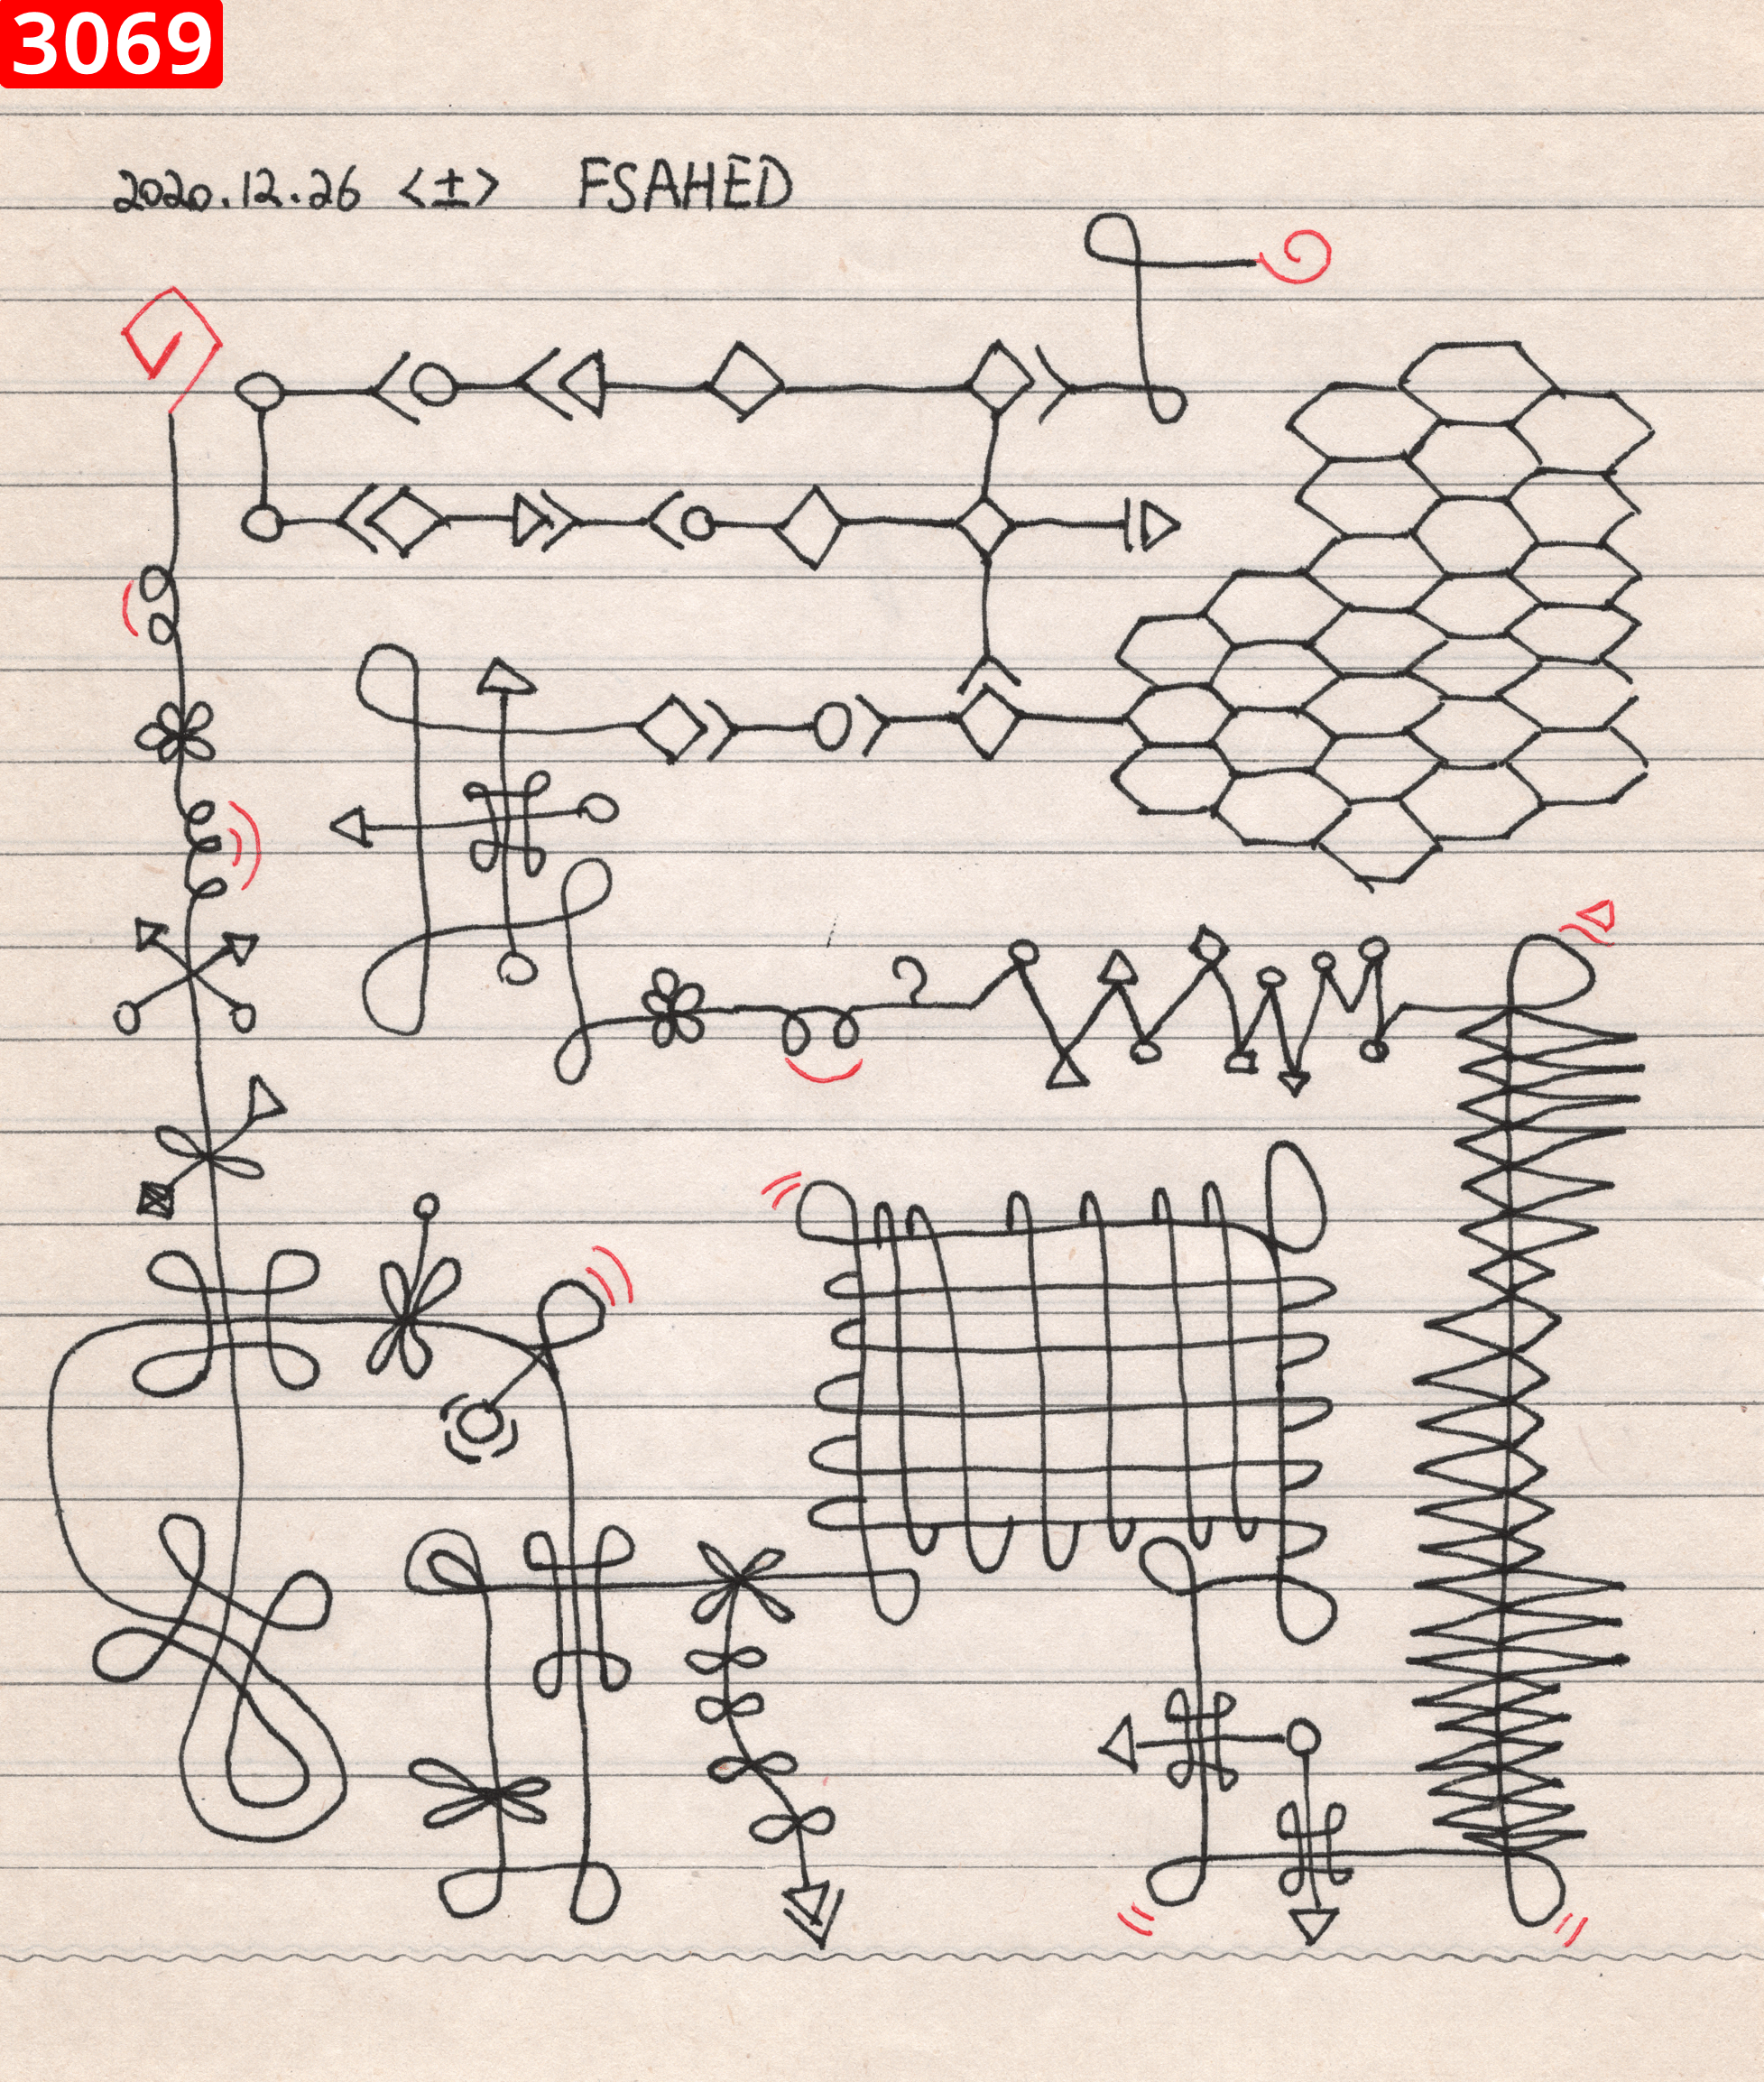 3069
2020.12.26 <±> FSAHED